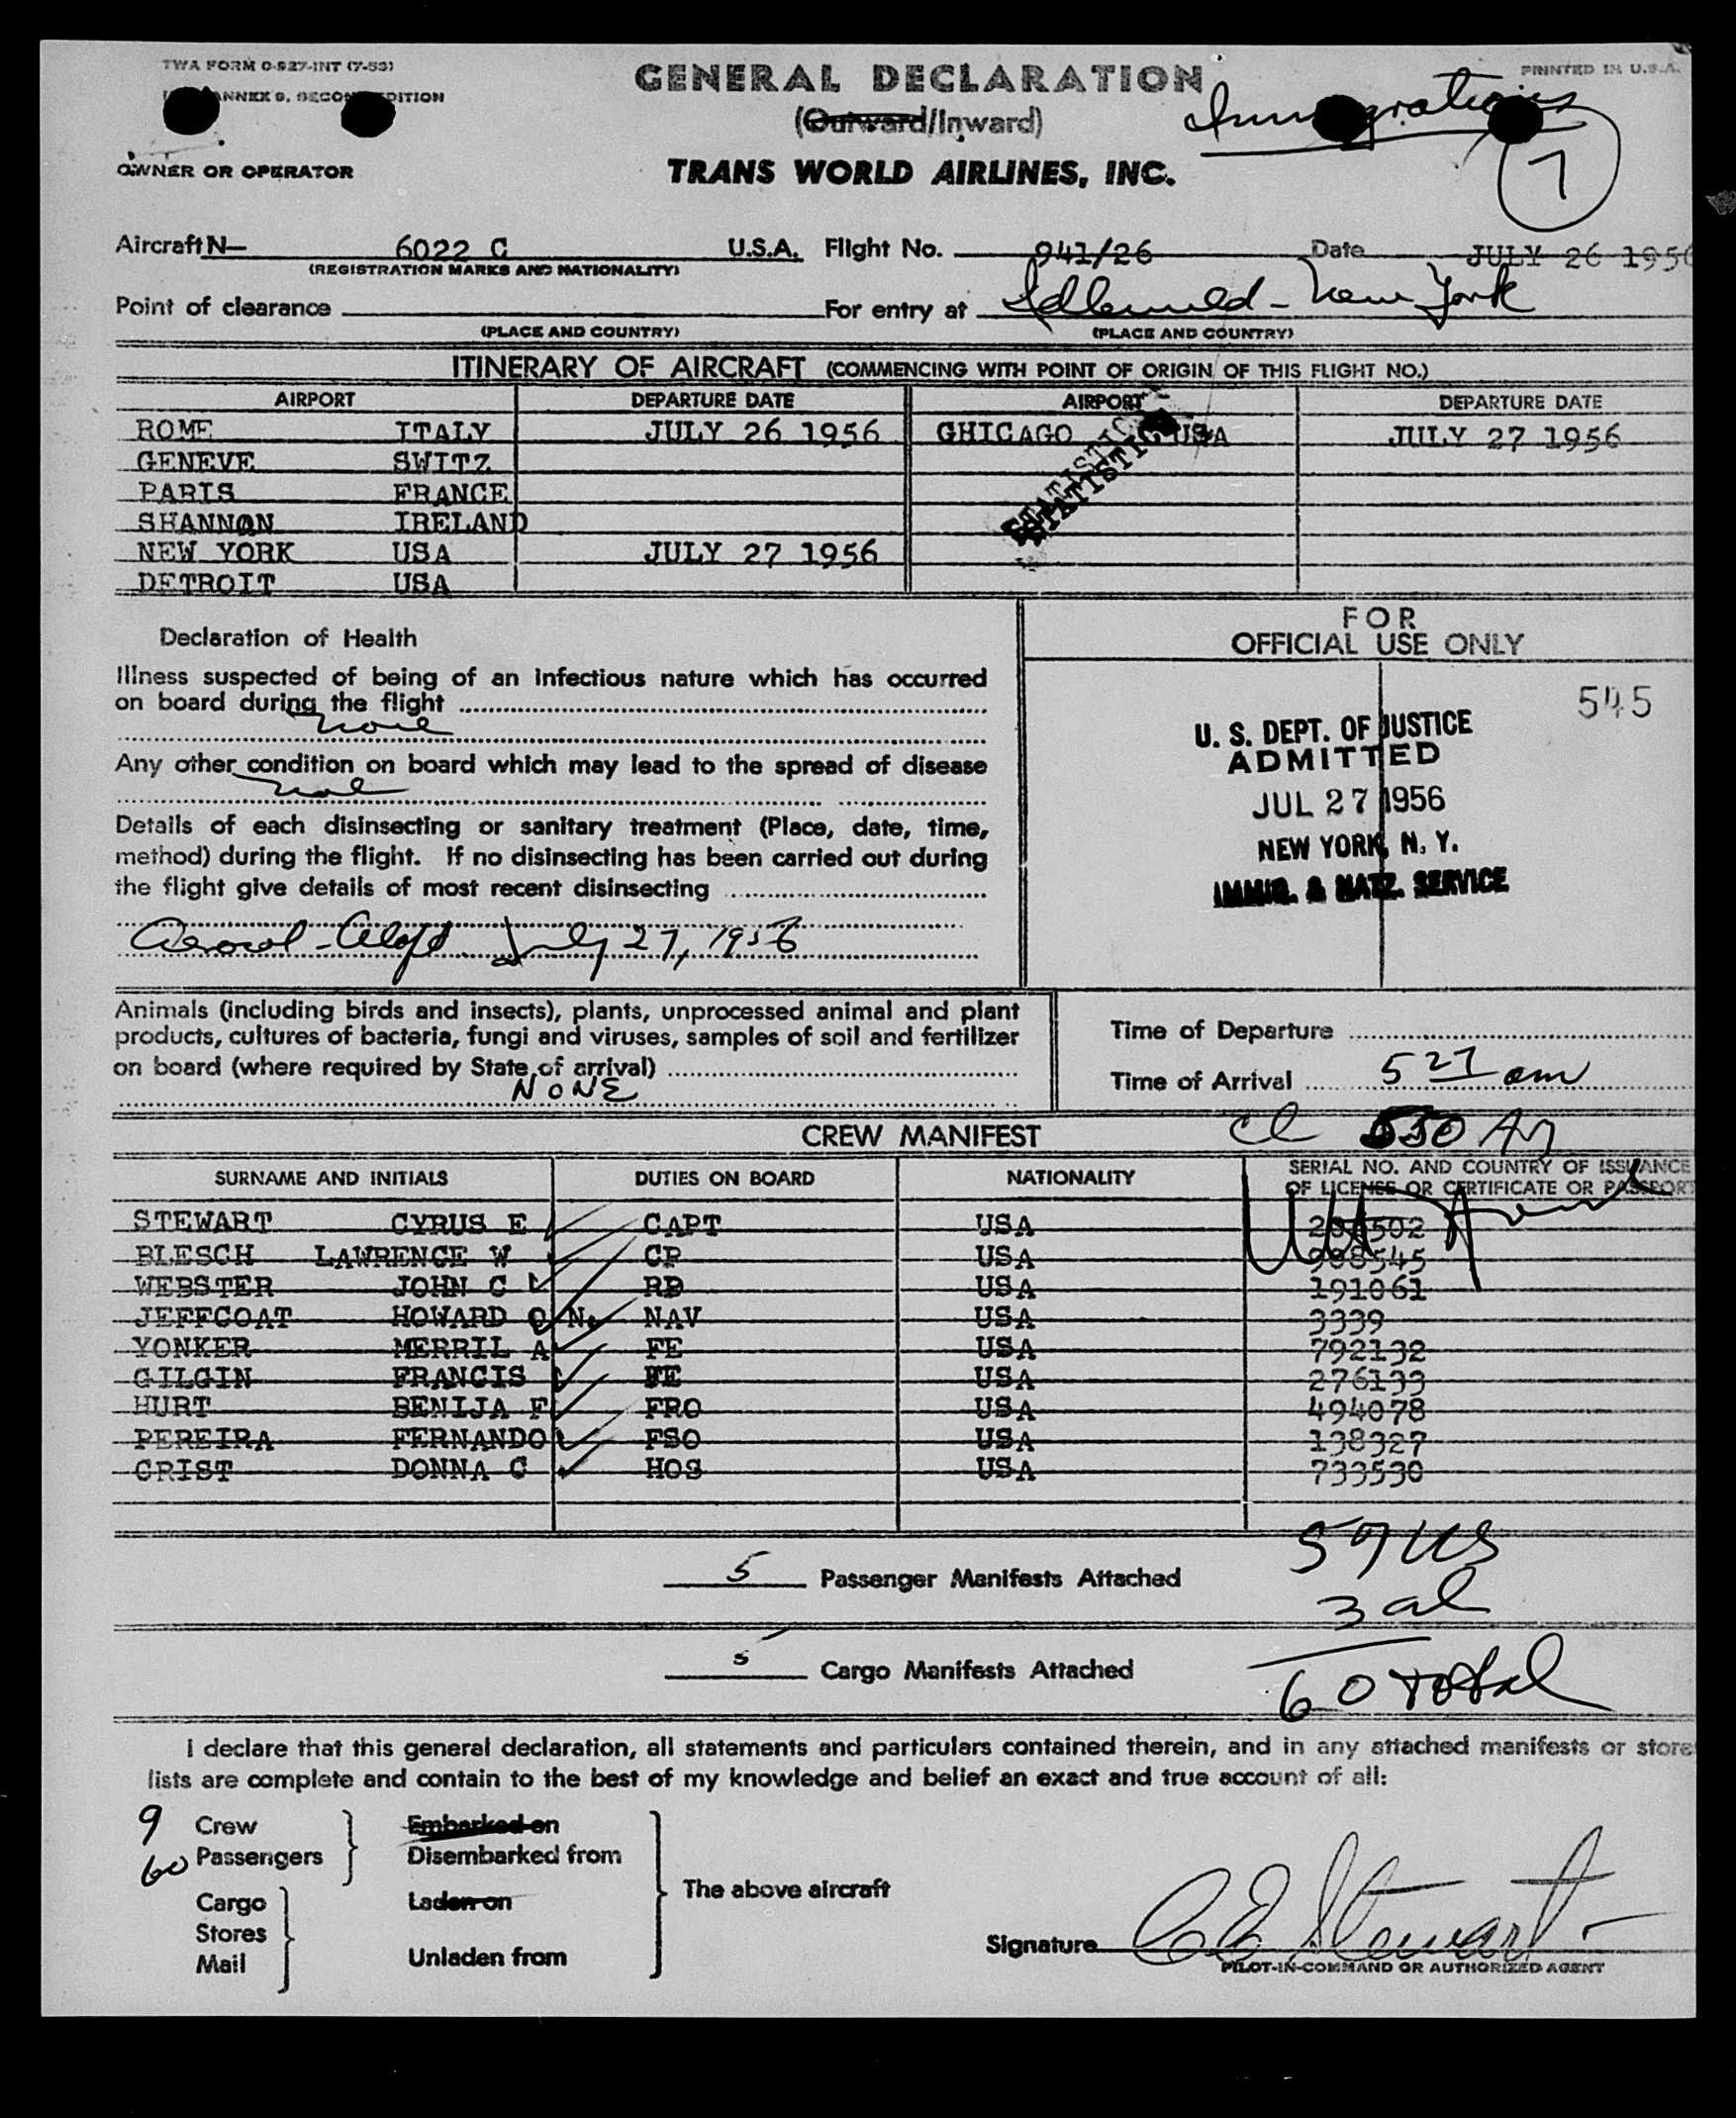 TWA FORM O-927-INT (7-53)
PRINTED IN U.S.A.
ANNEX 9, SECOND EDITION
GENERAL DECLARATION
(Outward/Inward)
Immigration
7
OWNER OR OPERATOR
TRANS WORLD AIRLINES, INC.
Aircraft N— 6022 C U.S.A. Flight No. 941/26 Date JULY 26 1956
(REGISTRATION MARKS AND NATIONALITY)
Point of clearance For entry at Idlewild - New York
(PLACE AND COUNTRY) (PLACE AND COUNTRY)
ITINERARY OF AIRCRAFT (COMMENCING WITH POINT OF ORIGIN OF THIS FLIGHT NO.)
AIRPORT DEPARTURE DATE AIRPORT DEPARTURE DATE
ROME ITALY JULY 26 1956 GHICAGO USA JULY 27 1956
GENEVE SWITZ
PARIS FRANCE
SHANNON IRELAND
NEW YORK USA JULY 27 1956
DETROIT USA
STATISTICS
STATISTICS
Declaration of Health
Illness suspected of being of an infectious nature which has occurred
on board during the flight
none
Any other condition on board which may lead to the spread of disease
none
Details of each disinsecting or sanitary treatment (Place, date, time,
method) during the flight. If no disinsecting has been carried out during
the flight give details of most recent disinsecting
Aerosol - Aloft July 27, 1956
FOR
OFFICIAL USE ONLY
545
U. S. DEPT. OF JUSTICE
ADMITTED
JUL 27 1956
NEW YORK, N. Y.
IMMIG. & NATZ. SERVICE
Animals (including birds and insects), plants, unprocessed animal and plant
products, cultures of bacteria, fungi and viruses, samples of soil and fertilizer
on board (where required by State of arrival)
NONE
Time of Departure
Time of Arrival 5 27 am
cl 550 Am
CREW MANIFEST
SURNAME AND INITIALS DUTIES ON BOARD NATIONALITY SERIAL NO. AND COUNTRY OF ISSUANCE
OF LICENSE OR CERTIFICATE OR PASSPORT
STEWART CYRUS E CAPT USA
BLESCH LAWRENCE W CP USA 988545
WEBSTER JOHN C RD USA 191061
JEFFCOAT HOWARD O N. NAV USA 3339
YONKER MERRIL A FE USA 792132
GILGIN FRANCIS FE USA 276133
HURT BENIJA F FRO USA 494078
PEREIRA FERNANDO FSO USA 138327
CRIST DONNA C HOS USA 733530
5 Passenger Manifests Attached
57 US
3 al
5 Cargo Manifests Attached
60 total
I declare that this general declaration, all statements and particulars contained therein, and in any attached manifests or store
lists are complete and contain to the best of my knowledge and belief an exact and true account of all:
9 Crew Embarked on
60 Passengers Disembarked from
The above aircraft
Cargo Laden on
Stores
Mail Unladen from
Signature C E Stewart
PILOT-IN-COMMAND OR AUTHORIZED AGENT